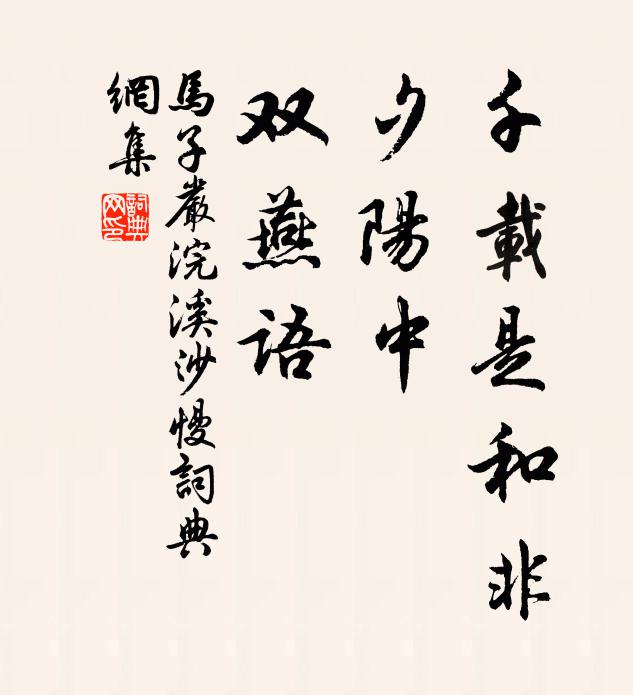 千載是和非
夕陽中
双燕語
馬子嚴浣溪沙慢詞典
網集
詞典
网印